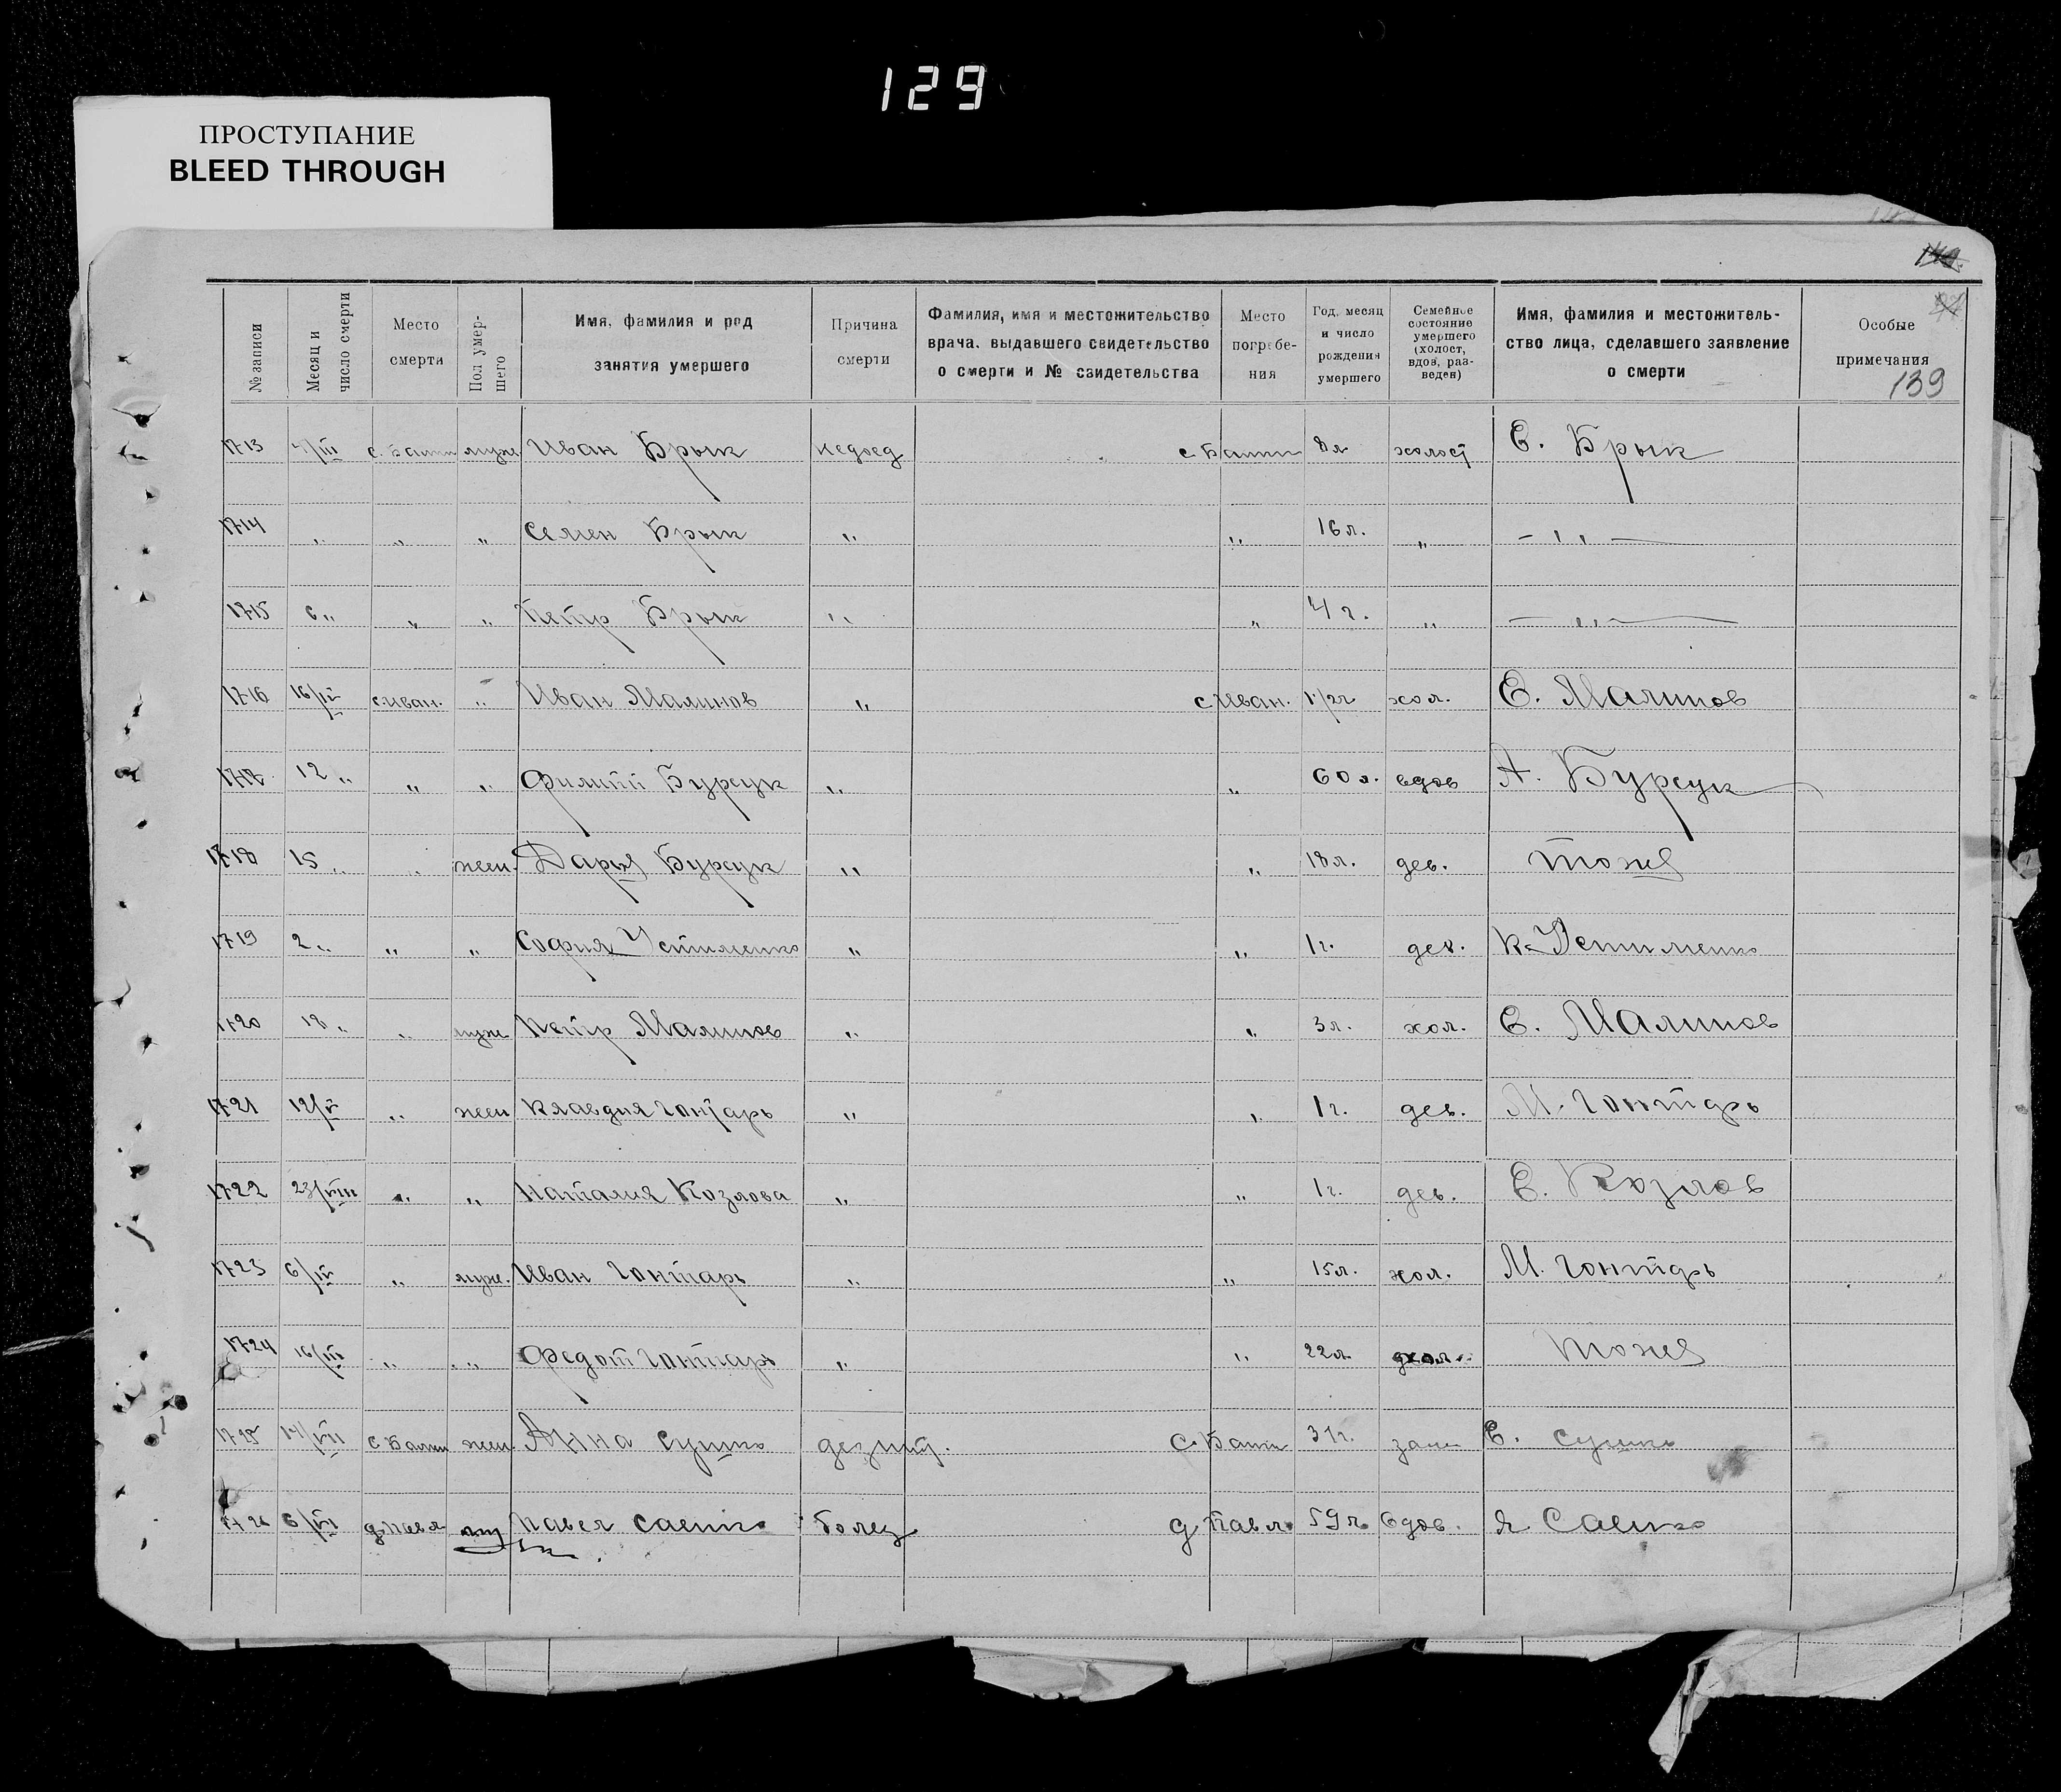 129
ПРОСТУПАНИЕ
BLEED THROUGH
№ записи
Месяц и число смерти
Место смерти
Пол умер-шего
Имя, фамилия и род занятия умершего
Причина смерти
Фамилия, имя и местожительство врача, выдавшего свидетельство о смерти и № свидетельства
Место погребе-ния
Год, месяц и число рождения умершего
Семейное состояние умершего (холост, вдов, раз-веден)
Имя, фамилия и местожитель-ство лица, сделавшего заявление о смерти
Особые примечания
139
1713 /III с. Башт муж Иван Брык недоед с Башт 8 л холост Е. Брык
1714 „ „ „ Семен Брык „ „ 16 л. „ — „ —
1715 6 „ „ „ Петр Брык „ „ 4 г. „ — „ —
1716 16/IV с. Иван. „ Иван Малинов „ с Иван. 1 1/2 г хол. Е. Малинов
1717 12 „ „ „ Филипп Бурсук „ „ 60 л. вдов А. Бурсук
1718 15 „ „ жен. Дарья Бурсук „ „ 18 л. дев. тоже
1719 2 „ „ „ София Устименко „ „ 1 г. дев. К. Устименко
1720 18 „ „ муж Петр Малинов „ „ 3 л. хол. Е. Малинов
1721 12/V „ жен Клавдия Гонтарь „ „ 1 г. дев. М. Гонтарь
1722 23/VIII „ „ Наталия Козлова „ „ 1 г. дев. Е. Козлов
1723 6/IV „ муж. Иван Гонтарь „ „ 15 л. хол. М. Гонтарь
1724 16/III „ „ Федот Гонтарь „ „ 22 л хол. тоже
1725 14/VII с Башт жен. Анна Сушко дезинт. с. Башт 31 г. зам Е. Сушко
1726 6/VII д. Павл муж Павел Саенко болез д Павл. 59 л. вдов. Я Саенко